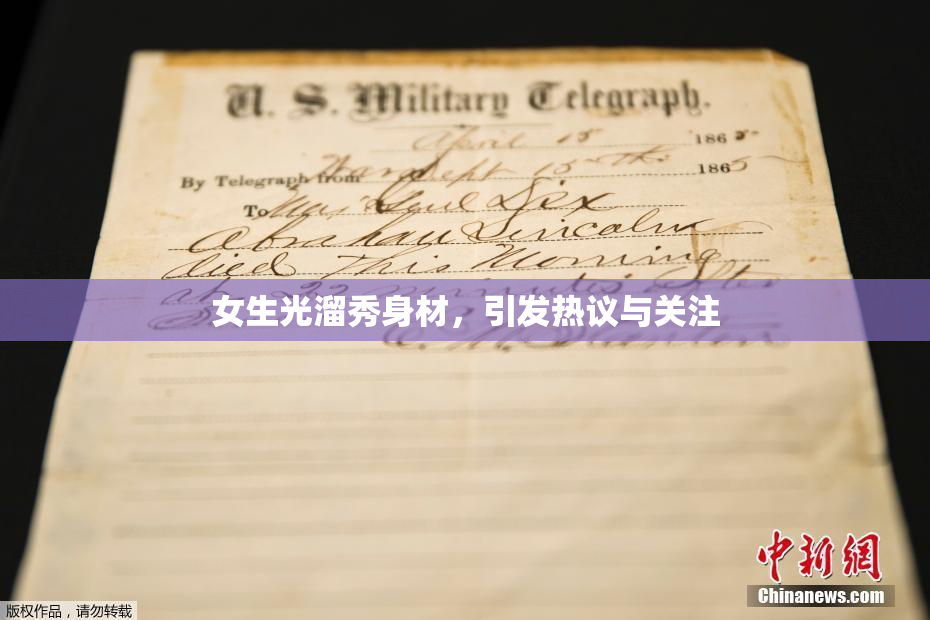 U. S. Military Telegraph.
April 15 1865
By Telegraph from War Dept 15th 1865
To Maj Genl Dix
Abraham Lincoln
died This Morning
at 22 minutes after
女生光溜秀身材，引发热议与关注
E. M. Stanton
中新网
Chinanews.com
版权作品，请勿转载